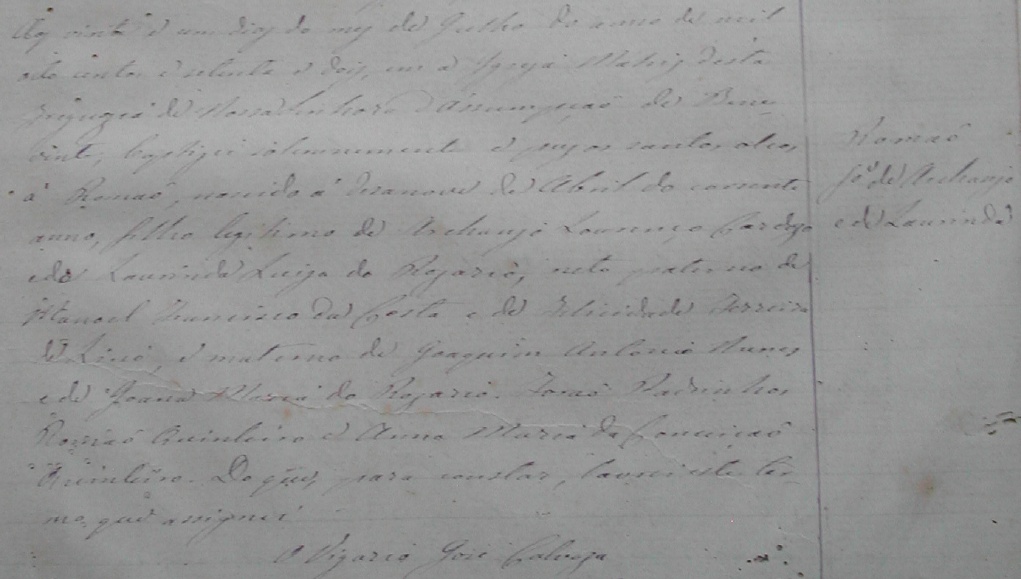 Aos vinte e um dias do mez de Julho do anno de mil
oito centos e setenta e dois, em a Igreja Matriz desta
Freguezia de Nossa Senhora d'Assumpção de Bene-
vente, baptizei solemnemente e puz os santos oleos
á Romaõ, nascido á desanove de Abril do corrente
anno, filho legitimo de Archanjo Lourenço Cardozo
e de Laurinda Luiza do Rozario, neto paterno de
Manoel Francisco da Costa e de Felicidade Ferreira
de, e materno de Joaquim Antonio Nunes
e de Joana Maria do Rozario. Foraõ Padrinhos
Romaõ Quinteiro e Anna Maria da Conceiçaõ
Quinteiro. Do que, para constar, lavrei este ter-
mo, que assignei
O Vigario José
Romaõ
fº de Archanjo
e de Laurinda